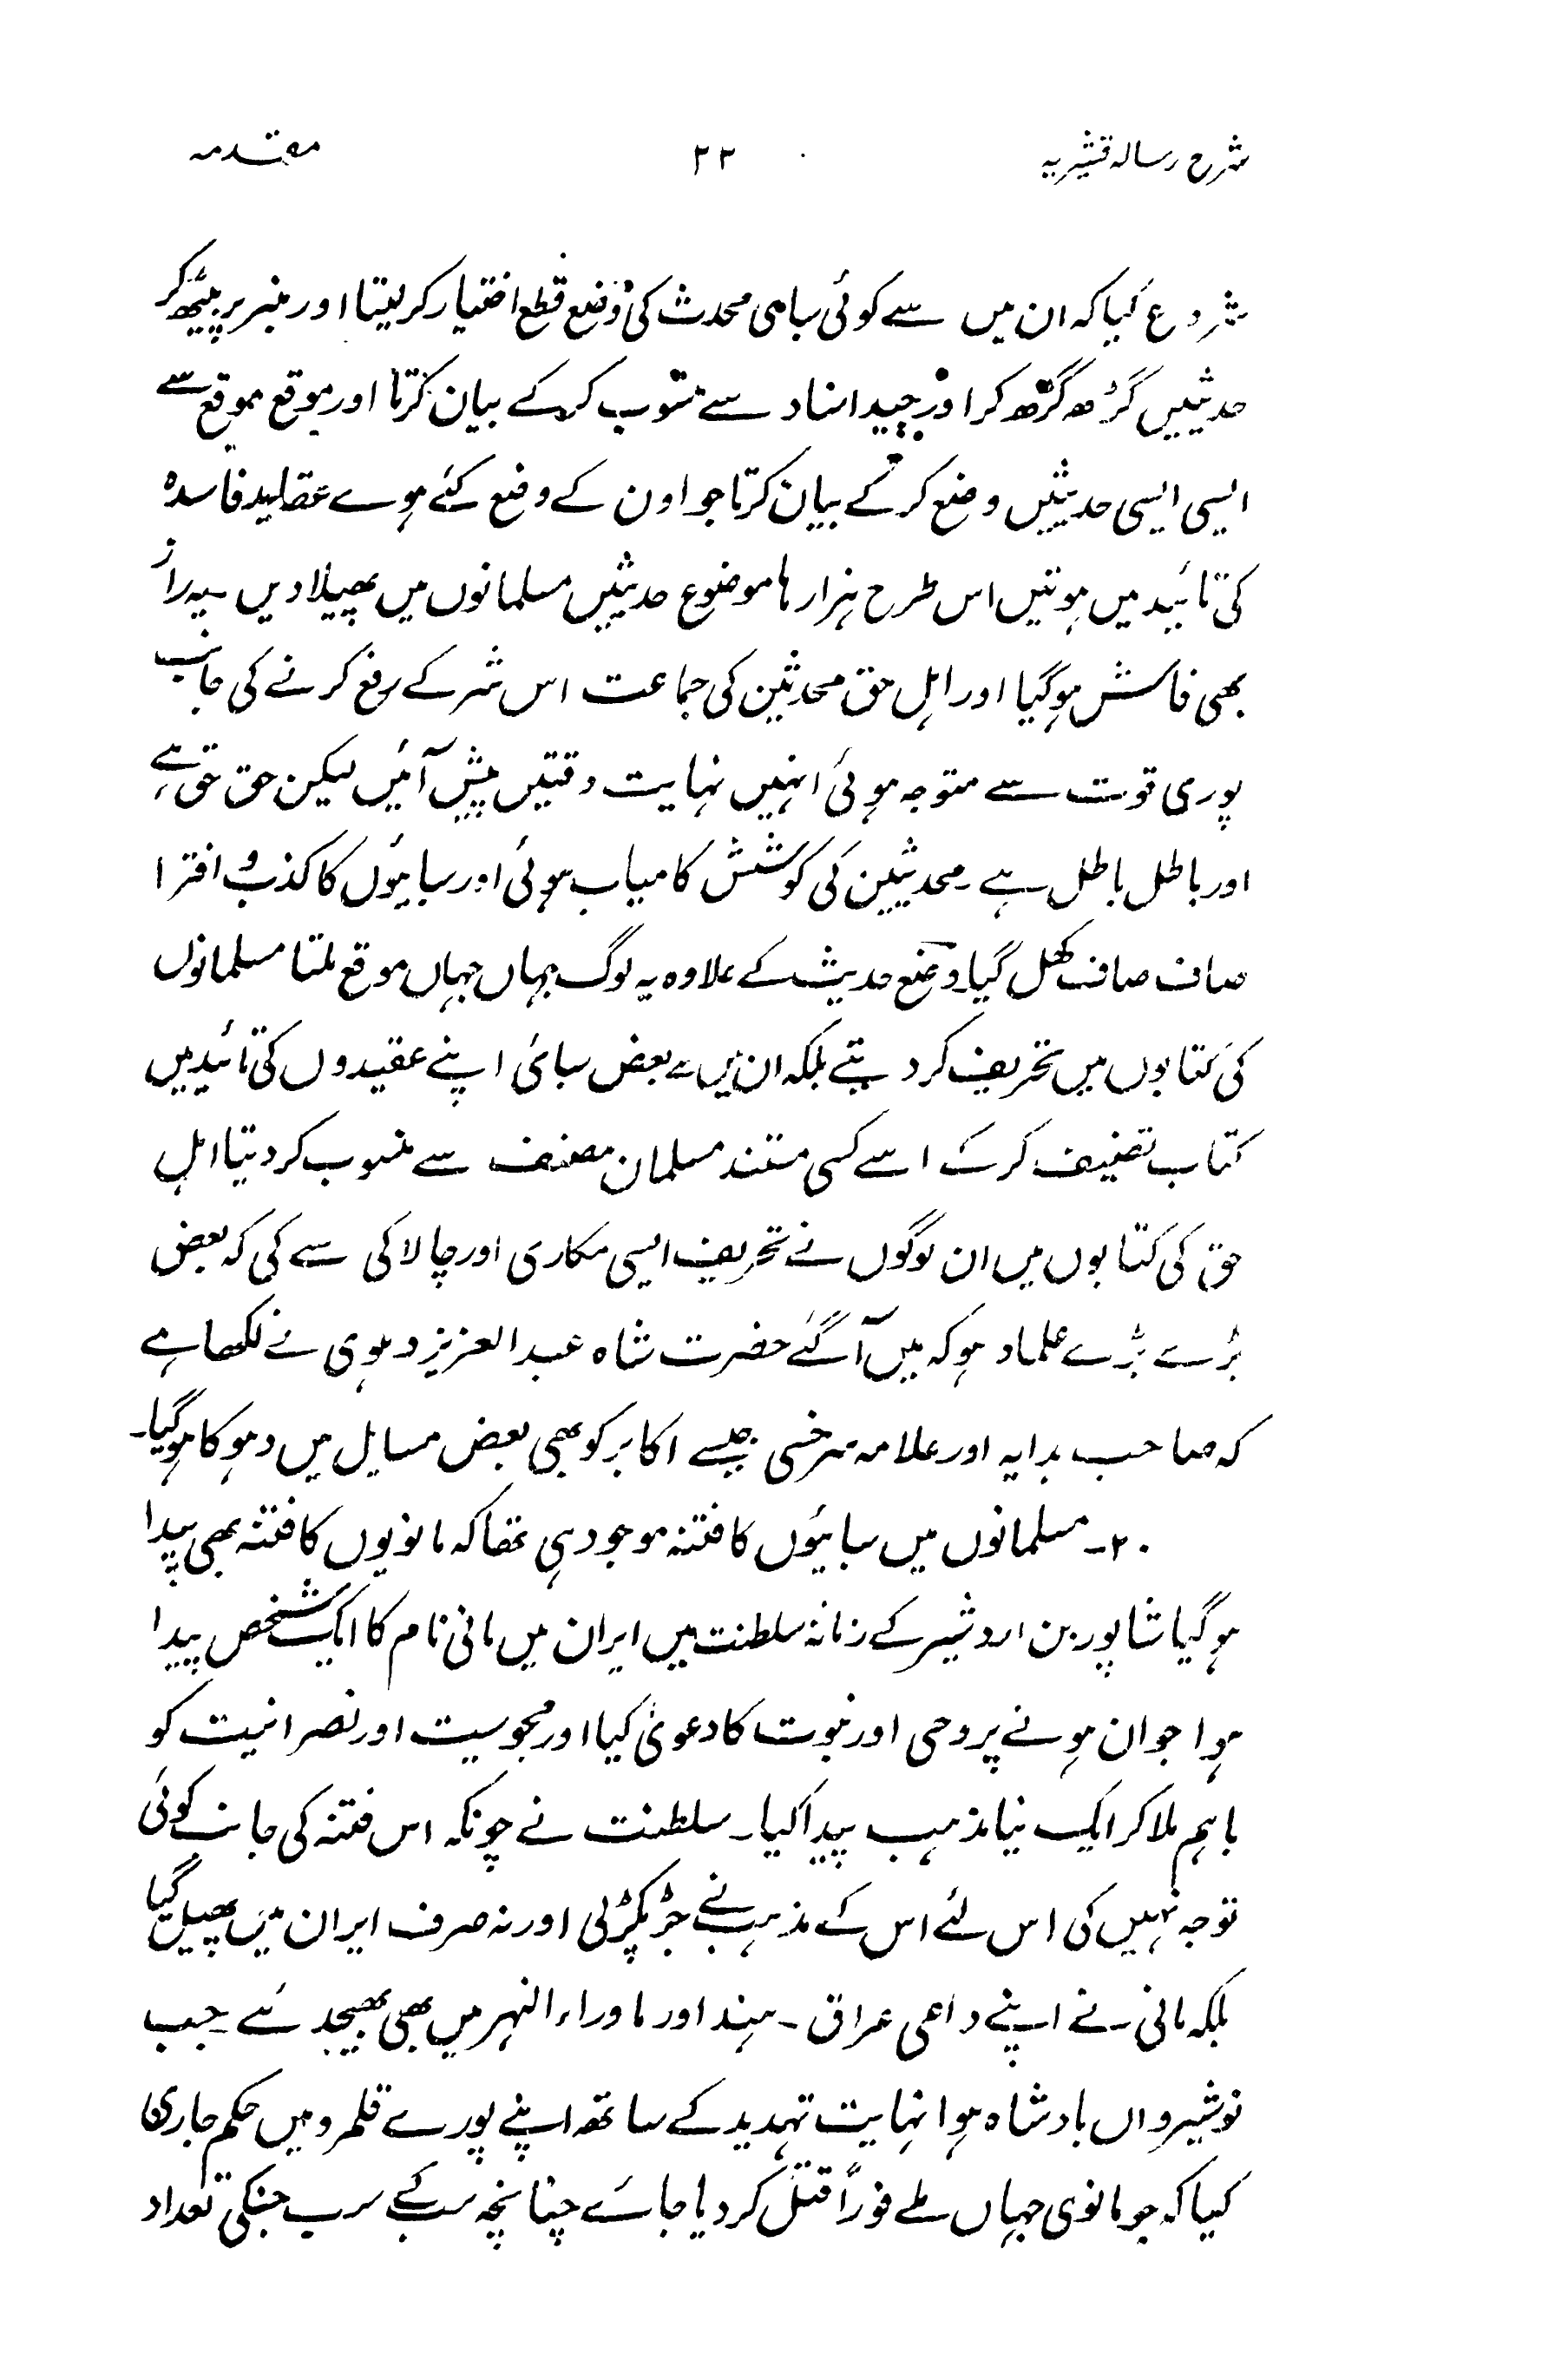 شرح رسالہ قشیریہ ۲۳ مقدمہ
شروع کیا کہ ان میں سے کوئی سبامی محدث کی وضع قطع اختیار کرلیتا اور منبر پر بیٹھ کر
حدیثیں گڑھ گڑھ کر اور جید اسناد سے منسوب کرکے بیان کرتا اور موقع موقع سے
ایسی ایسی حدیثیں وضع کرکے بیان کرتا جو اون کے وضع کئے ہوے عقایدفاسدہ
کی تائید میں ہوتیں اس طرح ہزارہا موضوع حدیثیں مسلمانوں میں پھیلادیں۔یہ راز
بھی فاش ہوگیا اور اہل حق محدثین کی جماعت اس شر کے رفع کرنے کی جانب
پوری قوت سے متوجہ ہوئی انہیں نہایت دقتیں پیش آئیں لیکن حق حق ہے
اور باطل باطل ہے۔محدثین کی کوشش کامیاب ہوئی اور سبائیوں کا کذب و افترا
صاف صاف کھل گیا۔وضع حدیث کے علاوہ یہ لوگ جہاں جہاں موقع ملتا مسلمانوں
کی کتابوں میں تحریف کردیتے بلکہ ان میں سے بعض سبائی اپنے عقیدوں کی تائید میں
کتاب تصنیف کرکے اسے کسی مستند مسلمان مصنف سے منسوب کردیتا اہل
حق کی کتابوں میں ان لوگوں نے تحریف ایسی مکاری اور چالاکی سے کی کہ بعض
بڑے بڑے علماء دہوکہ میں آگئے حضرت شاہ عبدالعزیز دہلوی نے لکھا ہے
کہ صاحب ہدایہ اور علامہ سرخسی جیسے اکابر کو بھی بعض مسایل میں دہوکا ہوگیا۔
۲۰۔مسلمانوں میں سبائیوں کا فتنہ موجود ہی تھا کہ مانویوں کا فتنہ بھی پیدا
ہوگیا شاپور بن اردشیر کے زمانۂ سلطنت میں ایران میں مانی نام کا ایک شخص پیدا
ہوا جوان ہونے پر وحی اور نبوت کا دعویٰ کیا اور مجوسیت اور نصرانیت کو
باہم ملا کر ایک نیا مذہب پیدا کیا۔سلطنت نے چونکہ اس فتنہ کی جانب کوئی
توجہ نہیں کی اس لئے اس کے مذہب نے جڑ پکڑلی اور نہ صرف ایران میں پھیل گیا
بلکہ مانی نے اپنے داعی عراق۔ہند اور ماوراءالنہر میں بھی بھیجدئے۔جب
نوشیرواں بادشاہ ہوا نہایت تہدید کے ساتھ اپنے پورے قلمرو میں حکم جاری
کیا کہ جو مانوی جہاں ملے فوراً قتل کردیا جائے چنانچہ سب کے سب جنکی تعداد